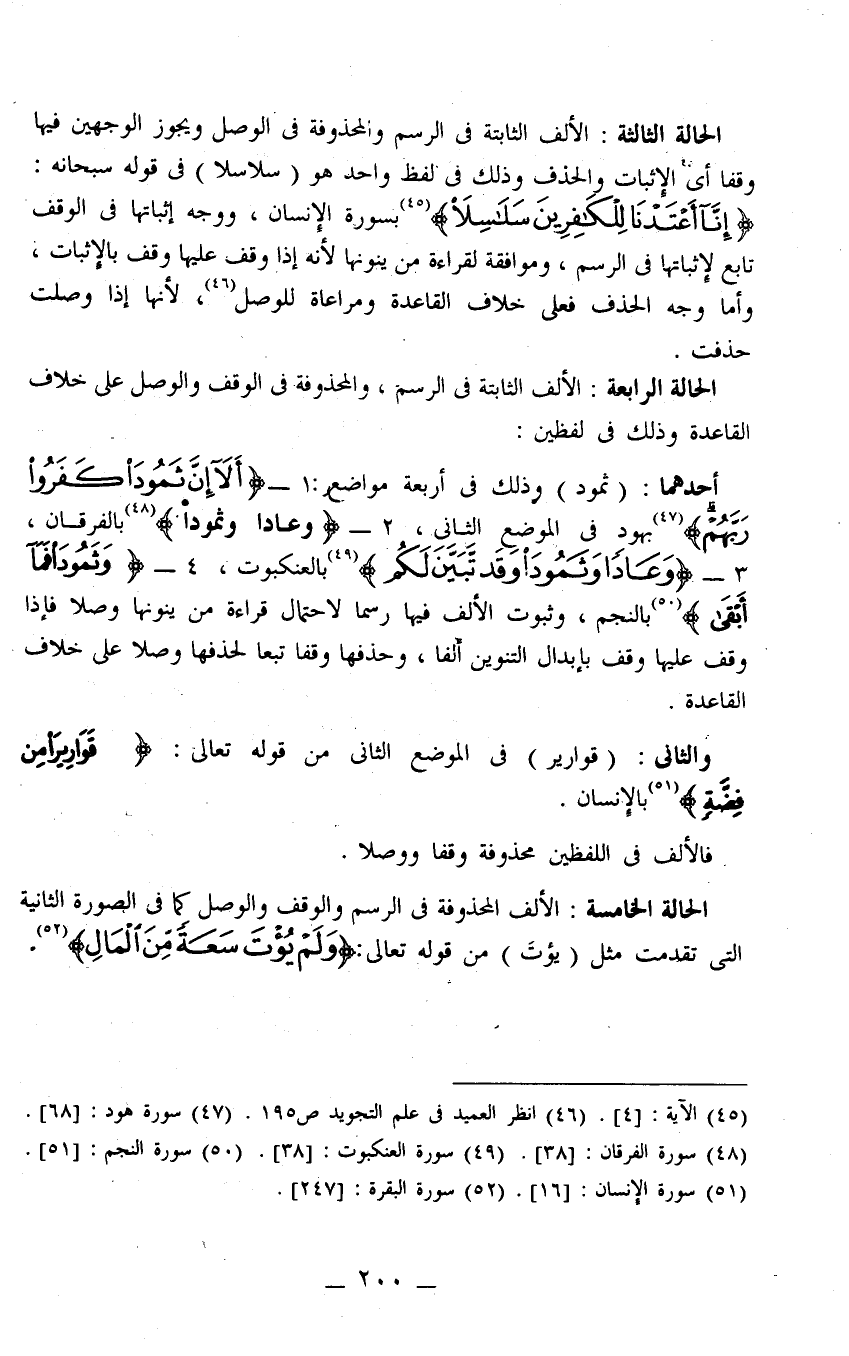 الحالة الثالثة : الألف الثابتة فى الرسم والمحذوفة فى الوصل ويجوز الوجهين فيها
وقفا أى الإثبات والحذف وذلك فى لفظ واحد هو ( سلاسلا ) فى قوله سبحانه :
﴿ إِنَّآ أَعْتَدْنَا لِلْكَٰفِرِينَ سَلَٰسِلَا۠ ﴾(٤٥) بسورة الإنسان ، ووجه إثباتها فى الوقف
تابع لإثباتها فى الرسم ، وموافقة لقراءة من ينونها لأنه إذا وقف عليها وقف بالإثبات ،
وأما وجه الحذف فعلى خلاف القاعدة ومراعاة للوصل(٤٦)، لأنها إذا وصلت
حذفت .
الحالة الرابعة : الألف الثابتة فى الرسم ، والمحذوفة فى الوقف والوصل على خلاف
القاعدة وذلك فى لفظين :
أحدهما : ( ثمود ) وذلك فى أربعة مواضع : ١ ـ ﴿ أَلَآ إِنَّ ثَمُودَا۟ كَفَرُوا۟
رَبَّهُمْ ﴾(٤٧) بهود فى الموضع الثانى ، ٢ ـ ﴿ وعادا وثمودا ﴾(٤٨) بالفرقان ،
٣ ـ ﴿ وَعَادًا وَثَمُودَا۟ وَقَد تَّبَيَّنَ لَكُم ﴾(٤٩) بالعنكبوت ، ٤ ـ ﴿ وَثَمُودَا۟ فَمَآ
أَبْقَىٰ ﴾(٥٠) بالنجم ، وثبوت الألف فيها رسما لاحتمال قراءة من ينونها وصلا فإذا
وقف عليها وقف بإبدال التنوين ألفا ، وحذفها وقفا تبعا لحذفها وصلا على خلاف
القاعدة .
والثانى : ( قوارير ) فى الموضع الثانى من قوله تعالى : ﴿ قَوَارِيرَا۟ مِن
فِضَّةٍ ﴾(٥١) بالإنسان .
فالألف فى اللفظين محذوفة وقفا ووصلا .
الحالة الخامسة : الألف المحذوفة فى الرسم والوقف والوصل كما فى الصورة الثانية
التى تقدمت مثل ( يؤتَ ) من قوله تعالى : ﴿ وَلَمْ يُؤْتَ سَعَةً مِّنَ ٱلْمَالِ ﴾(٥٢) .
(٤٥) الآية : [٤] . (٤٦) انظر العميد فى علم التجويد ص١٩٥ . (٤٧) سورة هود : [٦٨] .
(٤٨) سورة الفرقان : [٣٨] . (٤٩) سورة العنكبوت : [٣٨] . (٥٠) سورة النجم : [٥١] .
(٥١) سورة الإنسان : [١٦] . (٥٢) سورة البقرة : [٢٤٧] .
ـ ٢٠٠ ـ